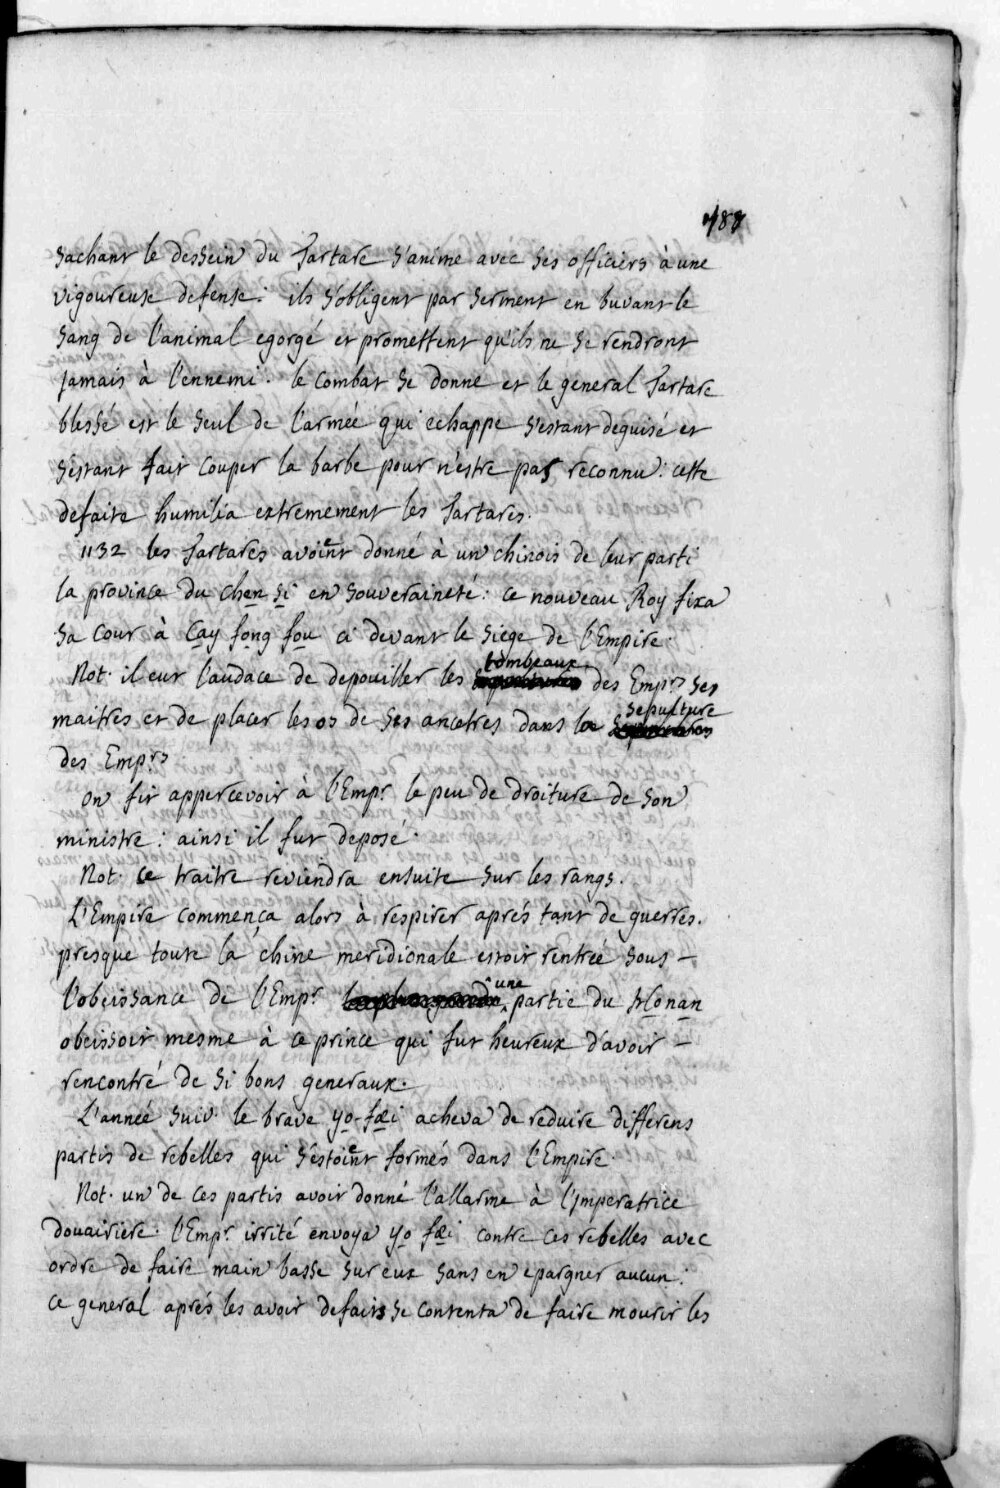 488
sachant le dessein du Tartare s'anime avec ses officiers à une
vigoureuse defense : ils s'obligent par serment en buvant le
sang de l'animal egorgé et promettent qu'ils ne se rendront
jamais à l'ennemi. le combat se donne et le general Tartare
blessé est le seul de l'armée qui echappe s'estant deguisé et
s'estant fait couper la barbe pour n'estre pas reconnu : cette
defaite humilia extremement les Tartares.
1132 les Tartares avoient donné à un chinois de leur parti
la province du chen si en souveraineté : ce nouveau Roy fixa
sa cour à Cay fong fou ci devant le siege de l'Empire.
Not. il eut l'audace de depouiller les tombeaux des Emprs ses
maitres et de placer les os de ses ancetres dans la sepulture
des Emprs
On fit appercevoir à l'Empr le peu de droiture de son
ministre : ainsi il fut deposé.
Not. ce traitre reviendra ensuite sur les rangs.
L'Empire commença alors à respirer aprés tant de guerres.
presque toute la chine meridionale estoit rentrée sous -
l'obeissance de l'Empr une partie du Honan
obeissoit mesme à ce prince qui fut heureux d'avoir -
rencontré de si bons generaux.
L'année suiv. le brave yo-fæi acheva de reduire differens
partis de rebelles qui s'estoient formés dans l'Empire.
Not. un de ces partis avoit donné l'allarme à l'Imperatrice
douairiere. l'Empr irrité envoya yo fæi contre ces rebelles avec
ordre de faire main basse sur eux sans en epargner aucun :
ce general aprés les avoir defaits se contenta de faire mourir les